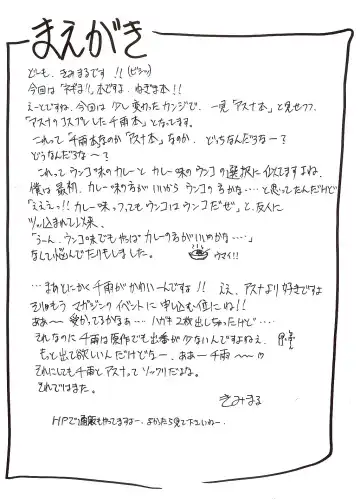 まえがき
どーも、きみまるです!!(ビシッ)
今回は「ネギま!」本ですよ、ねぎま本!!
えーとですね、今回は少し変わったカンジで、一見「アスナ本」と見せつつ、
「アスナのコスプレした千雨本」となってます。
これって「千雨本なのか「アスナ本」なのか、どっちなんだろなー?
どうなんだろなー?
これってウンコ味のカレーとカレー味のウンコの選択に似てますよね、
僕は最初、カレー味の方が良いから ウンコの方かな…と思ってたんだけど
「えええっ!!カレー味っつってもウンコはウンコだぜ」と、友人に
ツッ込まれて以来、
「うーん、ウンコ味でもやっぱカレーの方がいいのかな…」
なんて悩んでたりもしました。
ウマイ!!
…まぁとにかく千雨がかわいーんですよ!! ええ、アスナより好きですよ
そりゃもう マガジンのイベントに申し込む位にね!!
ああ〜 愛がってるかなぁ… ハガキ2枚出しちゃったけど…
それなのに千雨は原作でも出番が少ないんですよねえ、
もっと出て欲しいんだけどなー、ああー千雨〜
それにしても千雨とアスナってソックリだよな。
それではまた。
きみまる
HPで通販もやってますよー、よかったら見て下さいねー。